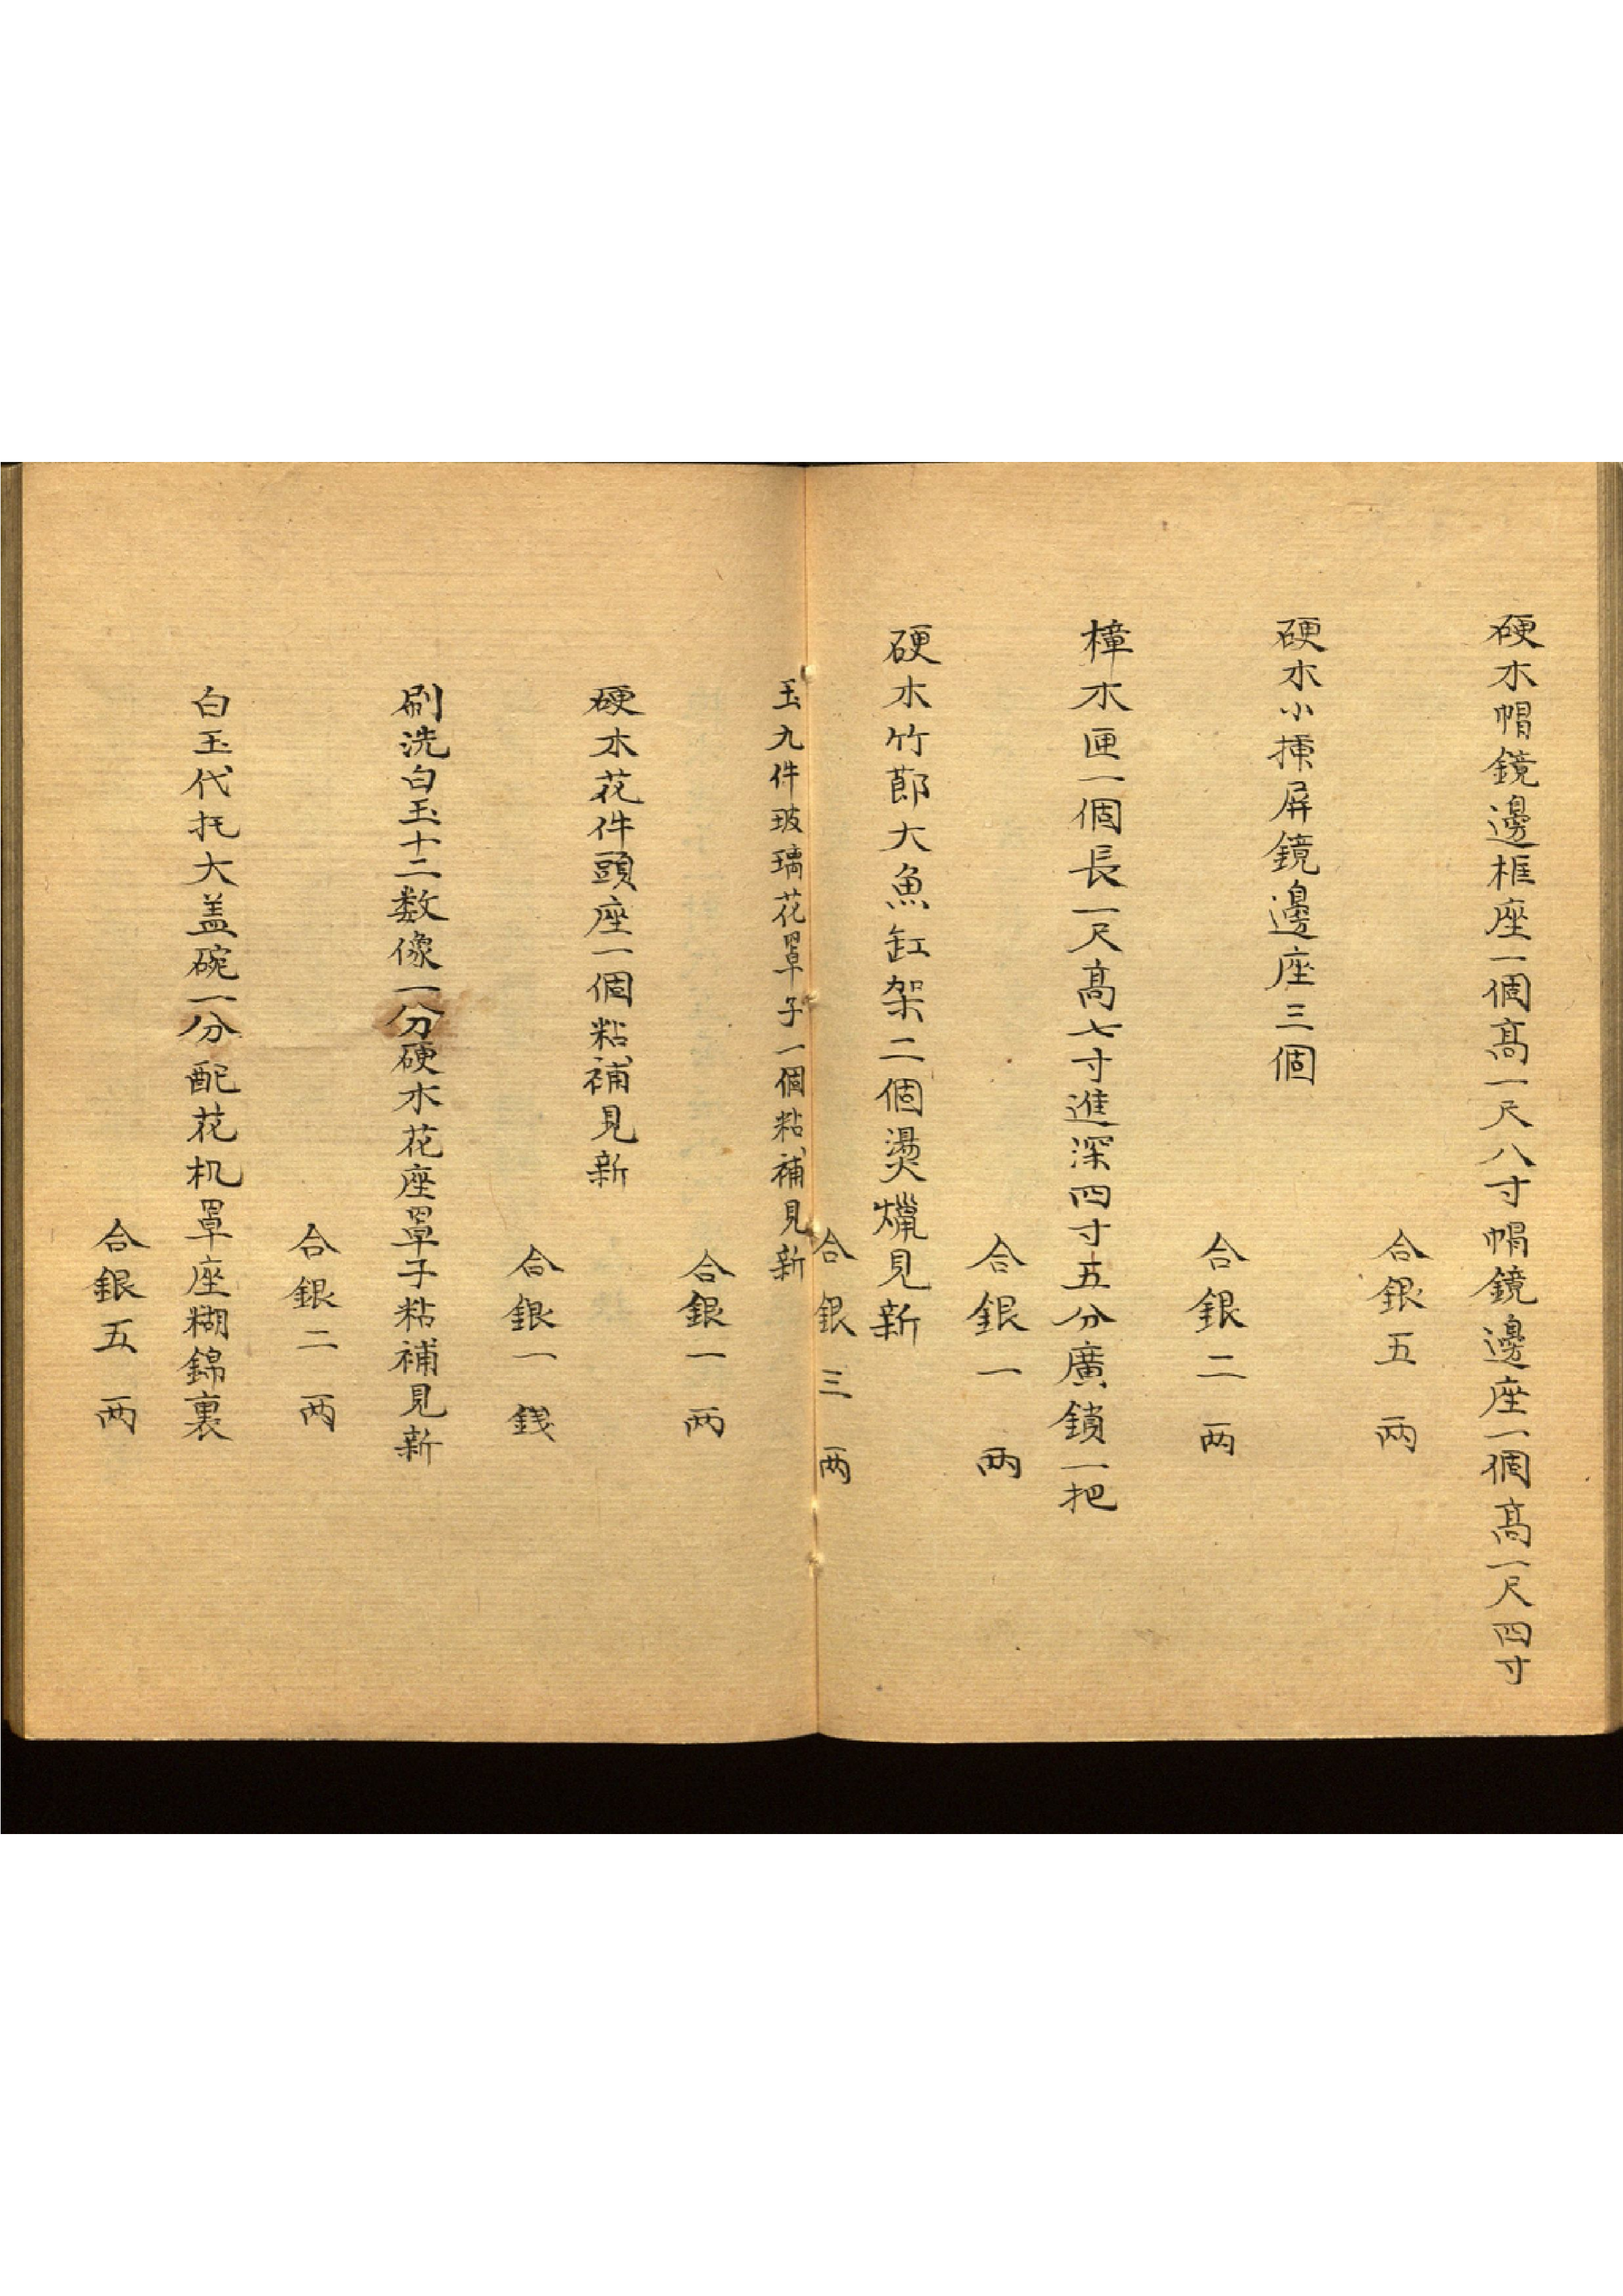 硬木帽鏡邊框座一個高一尺八寸帽鏡邊座一個高一尺四寸
合銀五两
硬木小揷屏鏡邊座三個
合銀二两
樟木匣一個長一尺高七寸進深四寸五分廣鎖一把
合銀一两
硬木竹節大魚缸架二個燙爉見新
合銀三两
玉九件玻璃花罩子一個粘補見新
合銀一两
硬木花件頭座一個粘補見新
合銀一錢
刷洗白玉十二数像一分硬木花座罩子粘補見新
合銀二两
白玉代托大盖碗一分配花机罩座糊錦裏
合銀五两